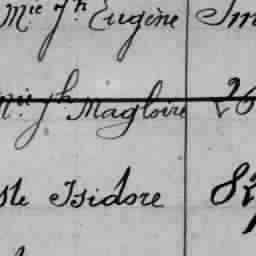 Mie Jh Eugène Im
Mie Jh Magloire 26
ste Isidore 82